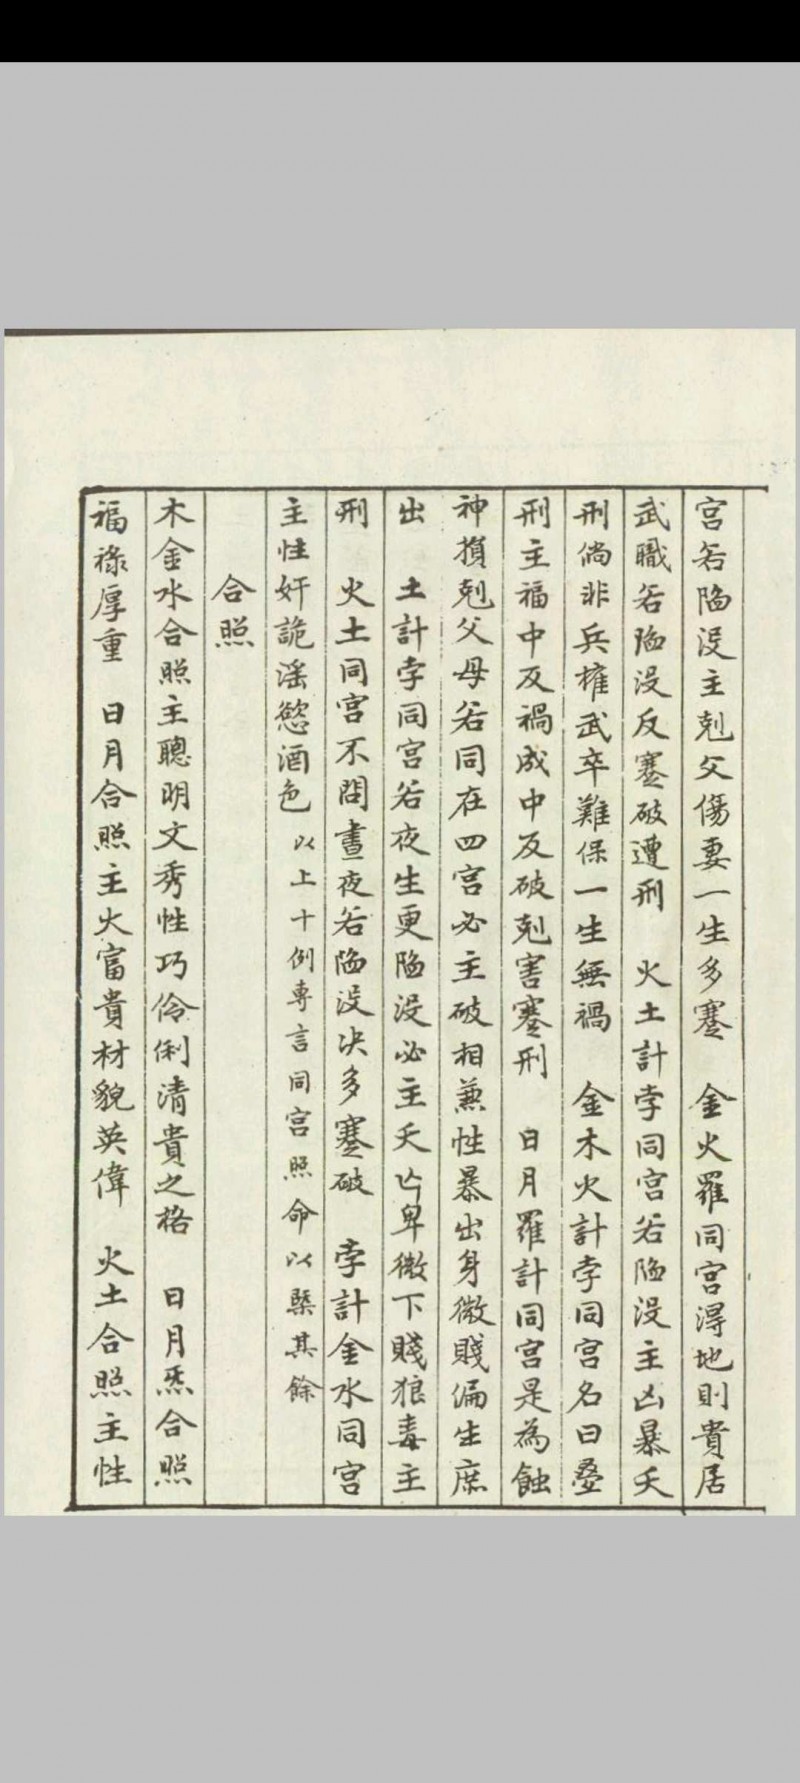 宮若陥沒主剋父傷妻一生多蹇　金火羅同宮得地則貴居
武職若陥沒反蹇破遭刑　火土計孛同宮若陥沒主凶暴夭
刑倘非兵權武卒難保一生無禍　金木火計孛同宮名曰疊
刑主福中反禍成中反破剋害蹇刑　日月羅計同宮是為蝕
神損剋父母若同在四宮必主破相兼性暴出身微賤偏生庶
出　土計孛同宮若夜生更陥沒必主夭亡卑微下賤狼毒主
刑　火土同宮不問晝夜若陥沒决多蹇破　孛計金水同宮
主性奸詭滛慾酒色　以上十例專言同宮照命以槩其餘
合照
木金水合照主聰明文秀性巧伶俐清貴之格　日月炁合照
福祿厚重　日月合照主火富貴材貌英偉　火土合照主性